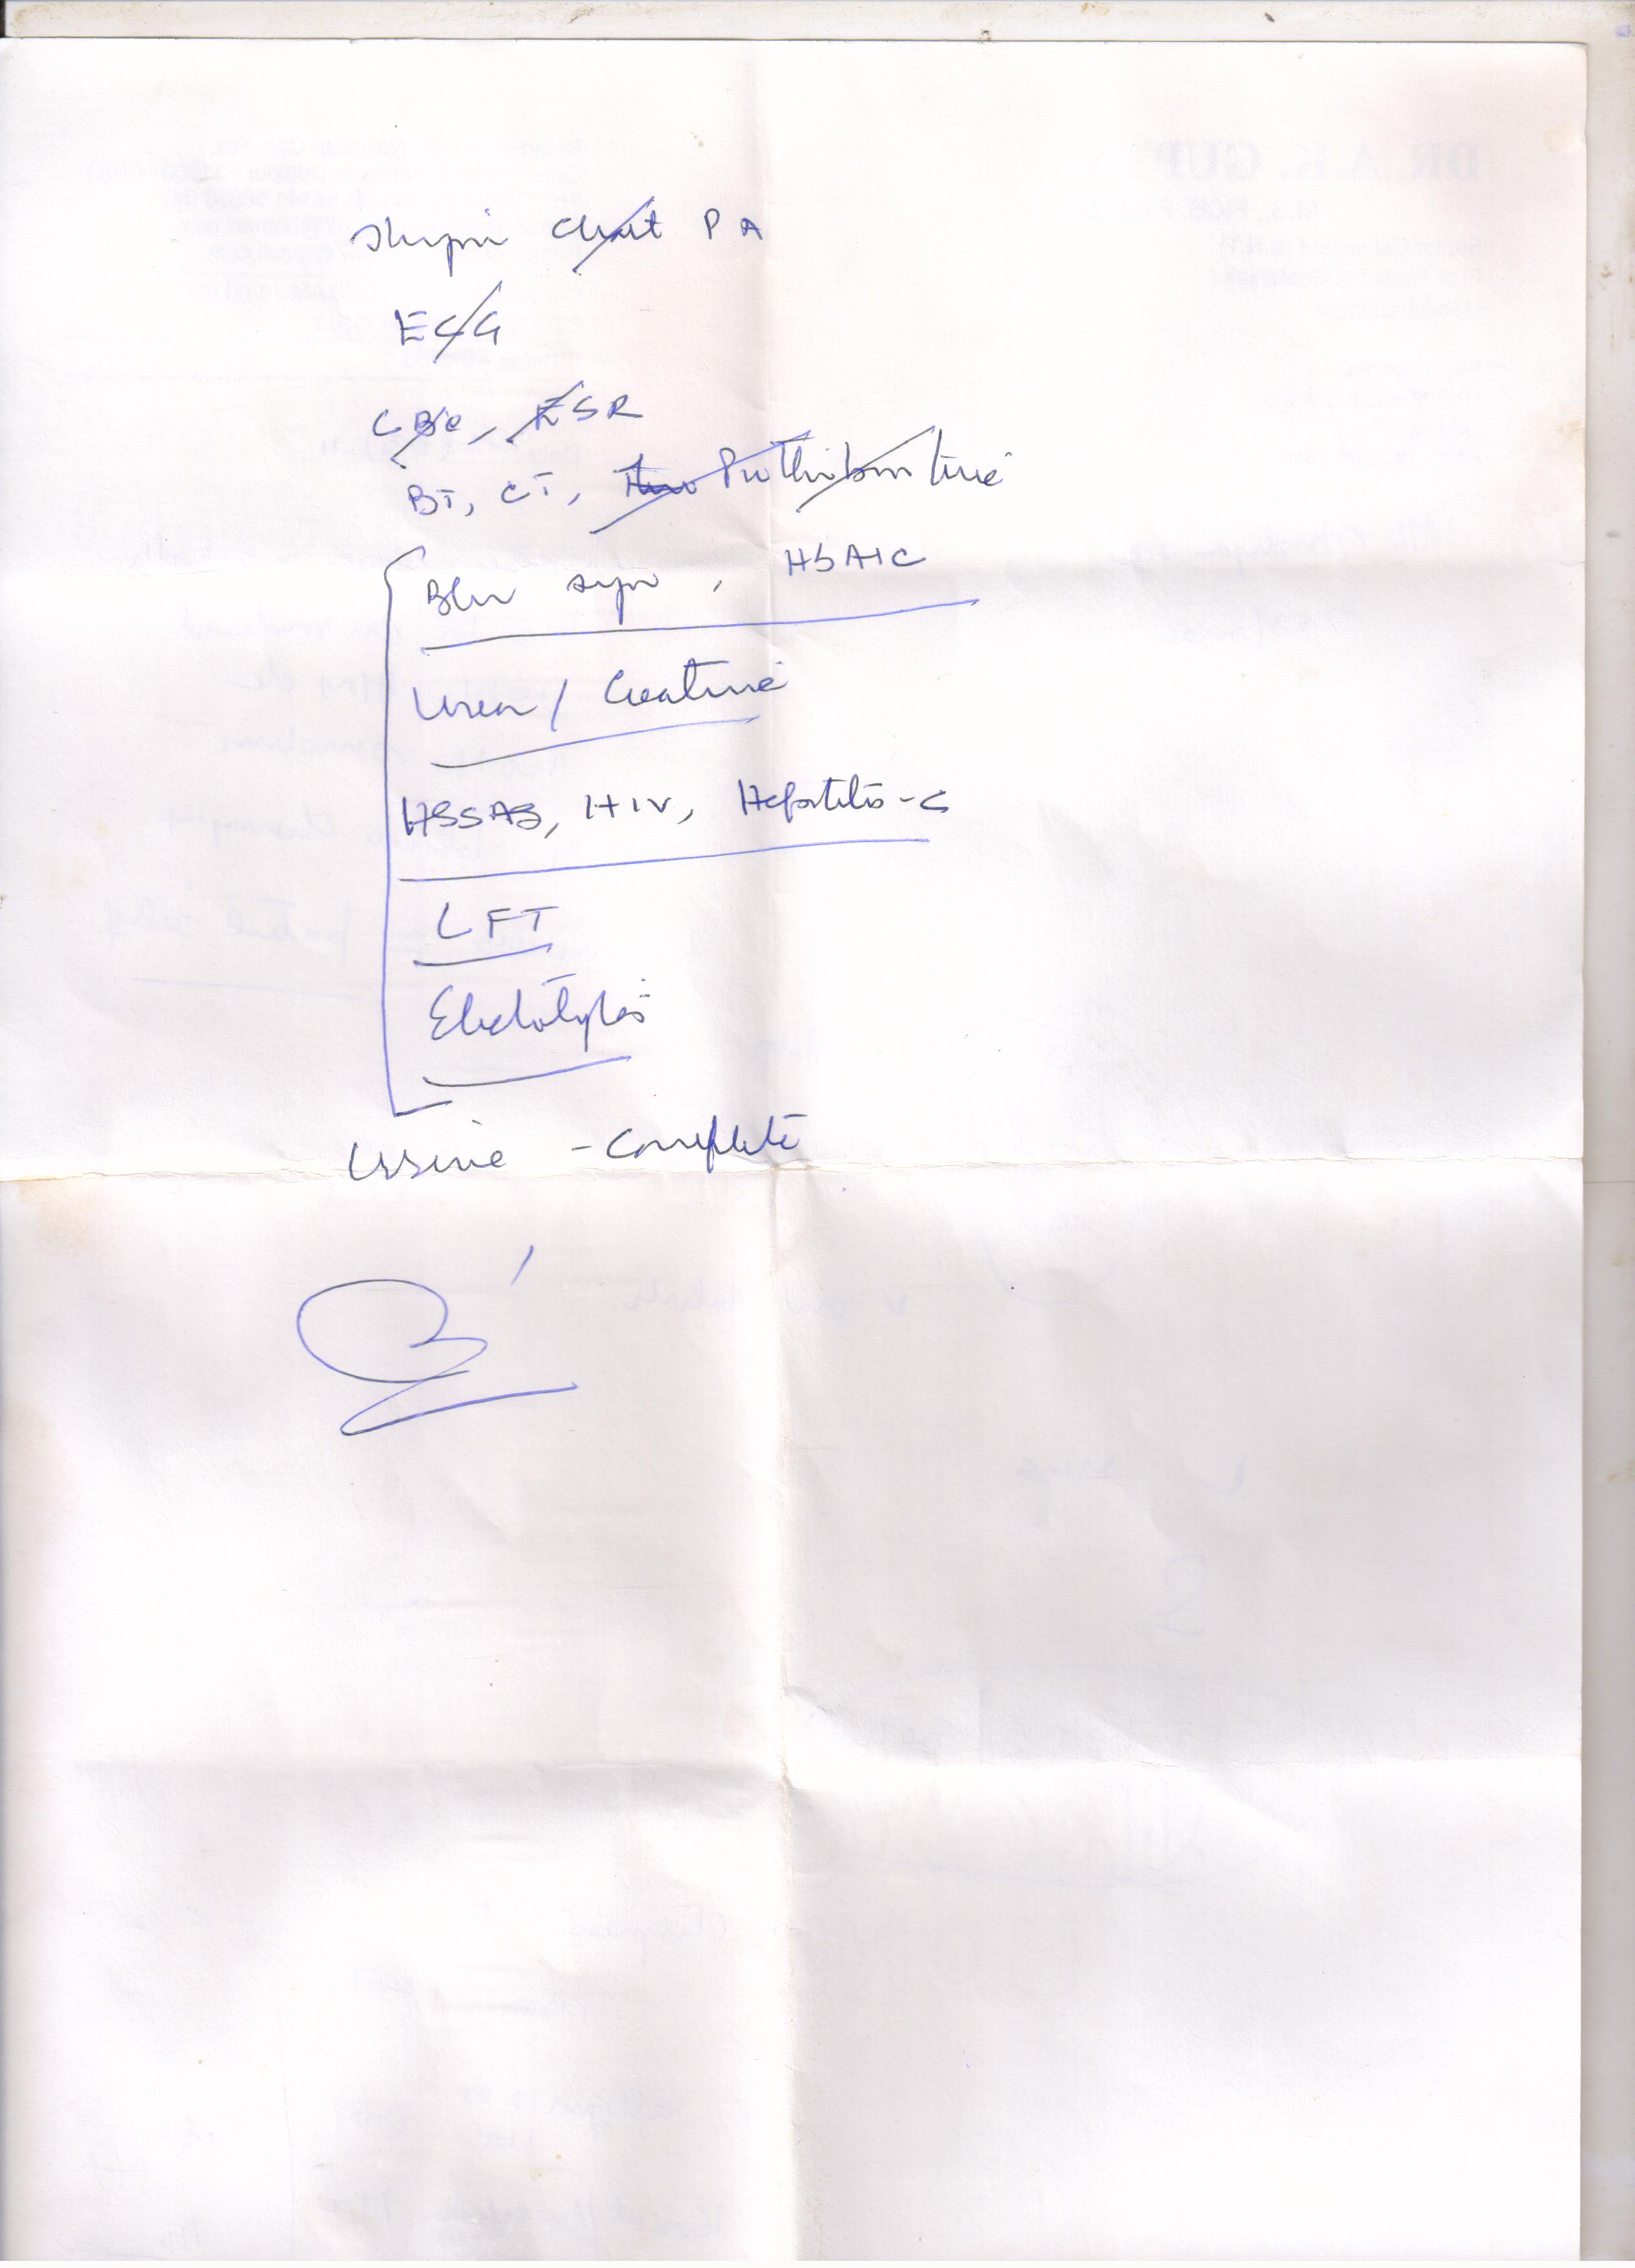 Chest PA
ECG
CBC, ESR
BT, CT, Prothrombin time
Blood sugar, HbA1C
Urea / Creatinine
HBSAG, HIV, Hepatitis-C
LFT
Electolytes
Urine - Complete